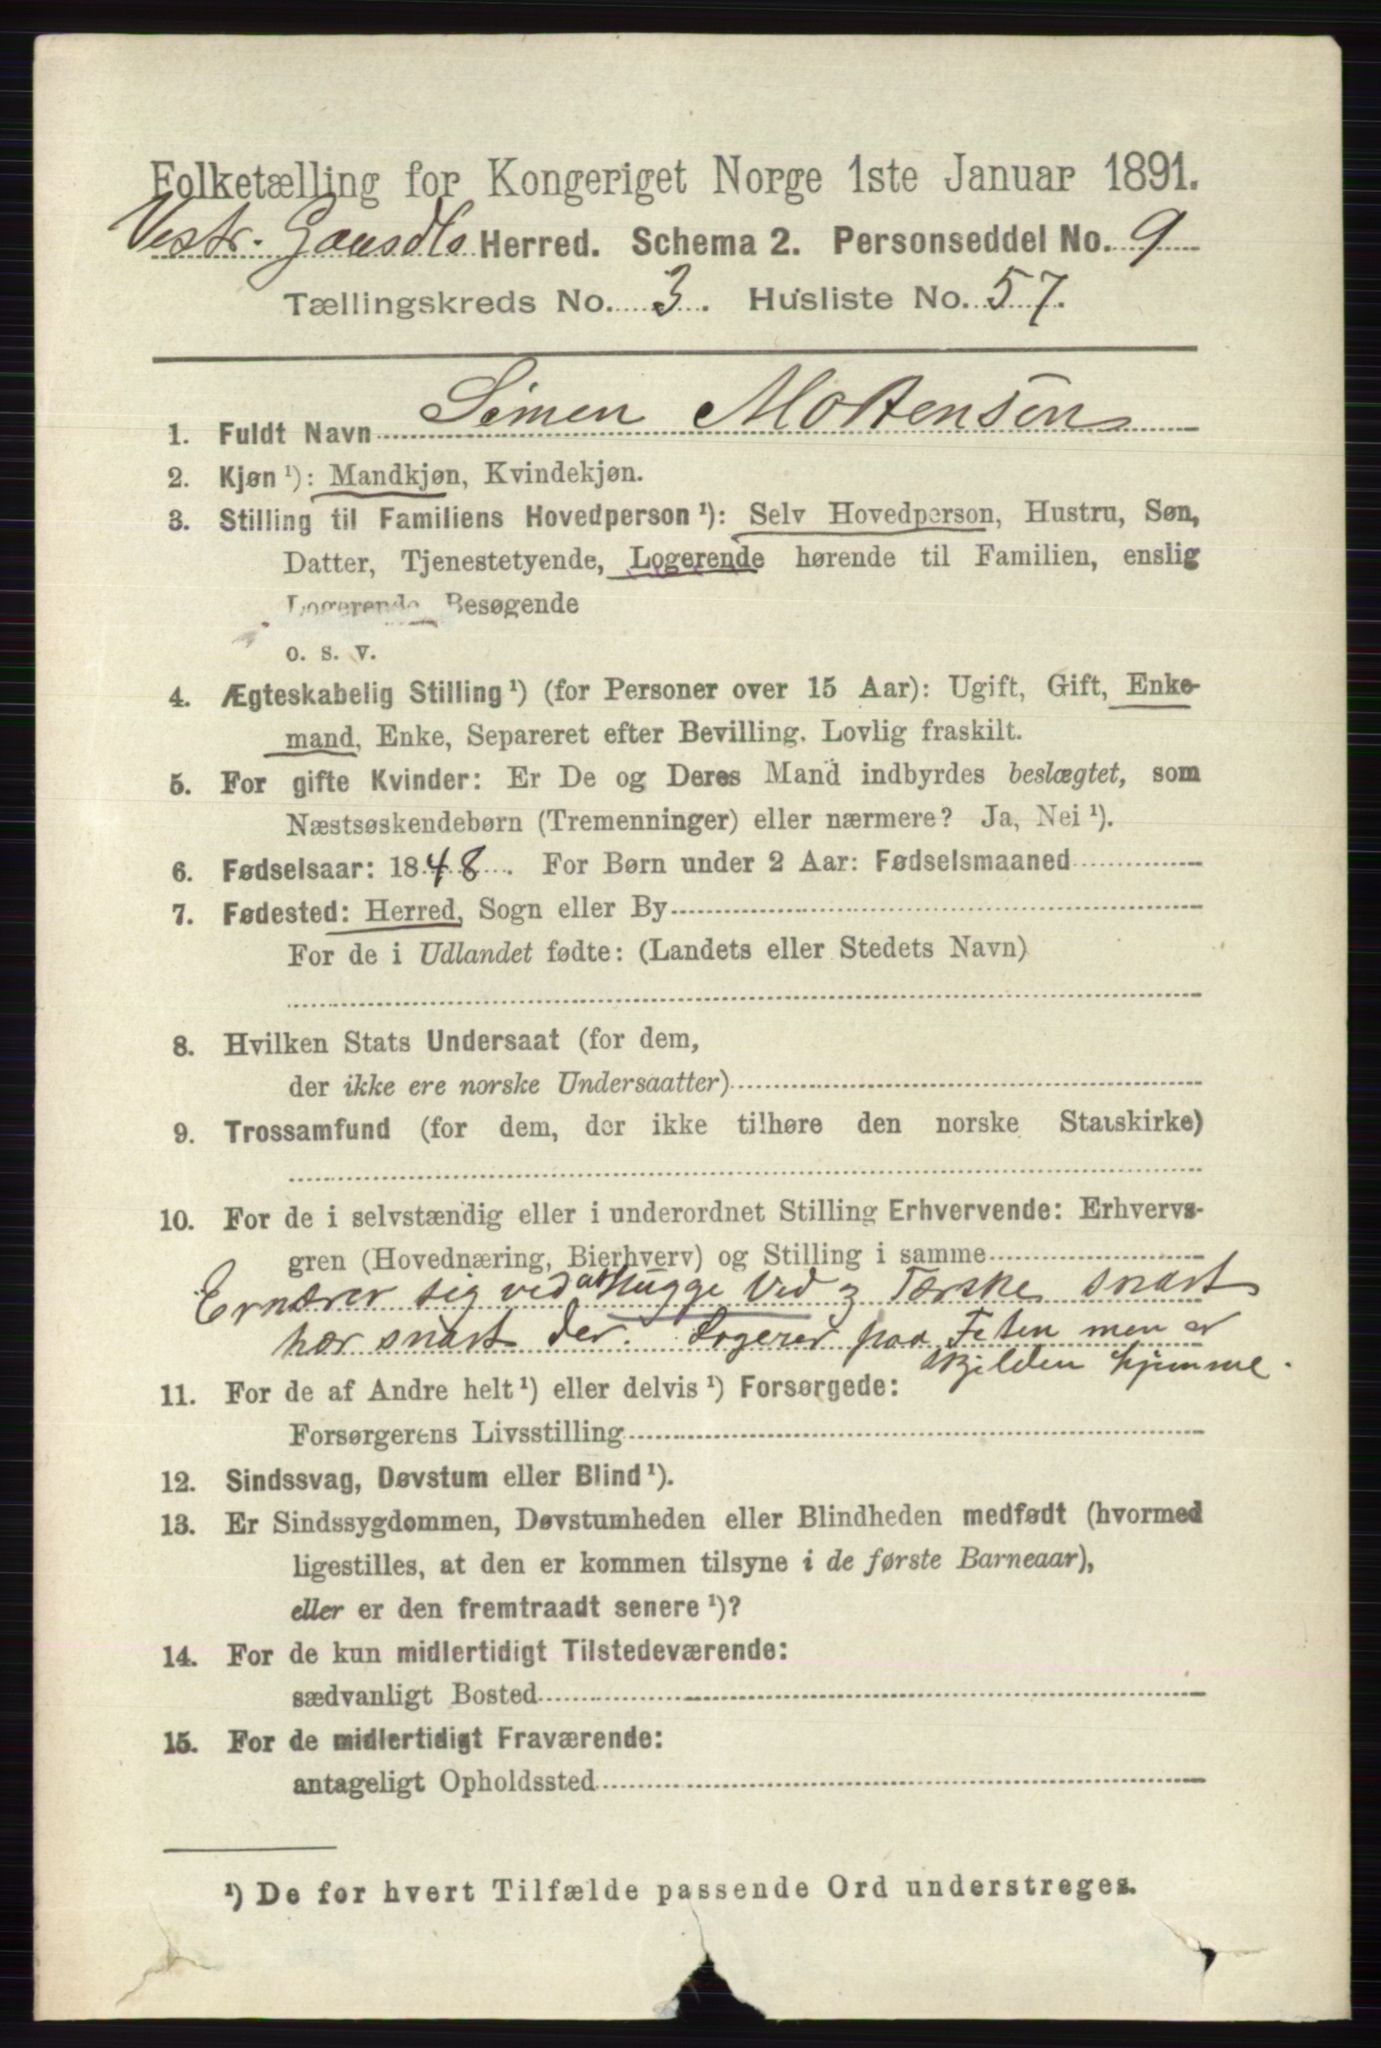 Folketælling for Kongeriget Norge 1ste Januar 1891.
Vestr. Gausdls Herred. Schema 2. Personseddel No. 9
Tællingskreds No. 3. Husliste No. 57.
1. Fuldt Navn Simen Mortensen
2. Kjøn ¹): Mandkjøn, Kvindekjøn.
3. Stilling til Familiens Hovedperson ¹): Selv Hovedperson, Hustru, Søn,
Datter, Tjenestetyende, Logerende hørende til Familien, enslig
Logerende, Besøgende
o. s. v.
4. Ægteskabelig Stilling ¹) (for Personer over 15 Aar): Ugift, Gift, Enke-
mand, Enke, Separeret efter Bevilling. Lovlig fraskilt.
5. For gifte Kvinder: Er De og Deres Mand indbyrdes beslægtet, som
Næstsøskendebørn (Tremenninger) eller nærmere? Ja, Nei ¹).
6. Fødselsaar: 1848. For Børn under 2 Aar: Fødselsmaaned
7. Fødested: Herred, Sogn eller By
For de i Udlandet fødte: (Landets eller Stedets Navn)
8. Hvilken Stats Undersaat (for dem,
der ikke ere norske Undersaatter)
9. Trossamfund (for dem, der ikke tilhøre den norske Statskirke)
10. For de i selvstændig eller i underordnet Stilling Erhvervende: Erhvervs-
gren (Hovednæring, Bierhverv) og Stilling i samme
Ernærer sig ved at Hugge Ved & Tærske snart
hær snart der. Logerer paa Feten men er
skjelden hjemme.
11. For de af Andre helt ¹) eller delvis ¹) Forsørgede:
Forsørgerens Livsstilling
12. Sindssvag, Døvstum eller Blind ¹).
13. Er Sindssygdommen, Døvstumheden eller Blindheden medfødt (hvormed
ligestilles, at den er kommen tilsyne i de første Barneaar),
eller er den fremtraadt senere ¹)?
14. For de kun midlertidigt Tilstedeværende:
sædvanligt Bosted
15. For de midlertidigt Fraværende:
antageligt Opholdssted
¹) De for hvert Tilfælde passende Ord understreges.